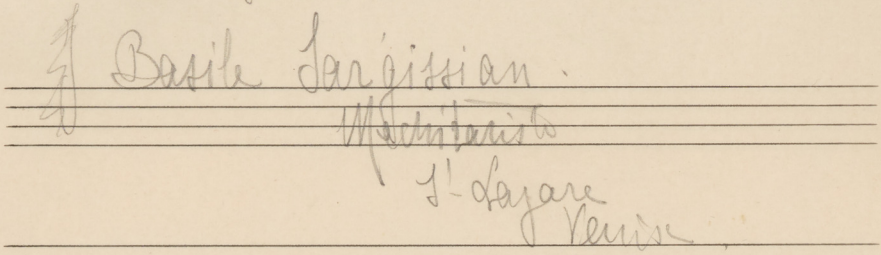 Basile Sargissian.
Mechitariste
St Lazare
Venise